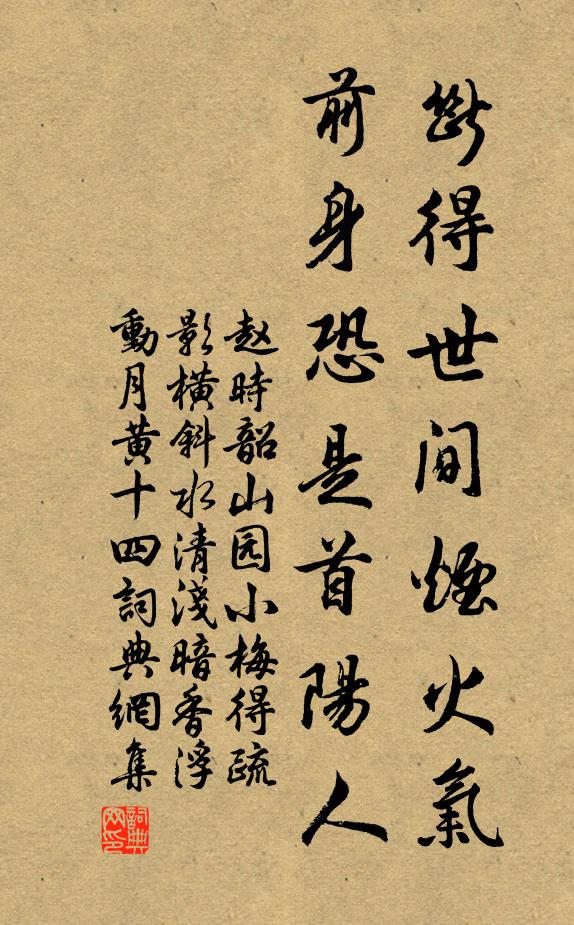 斷得世間煙火氣
前身恐是首陽人
赵時韶山园小梅得疏
影横斜水清淺暗香浮
動月黄十四詞典網集
詞典
网印